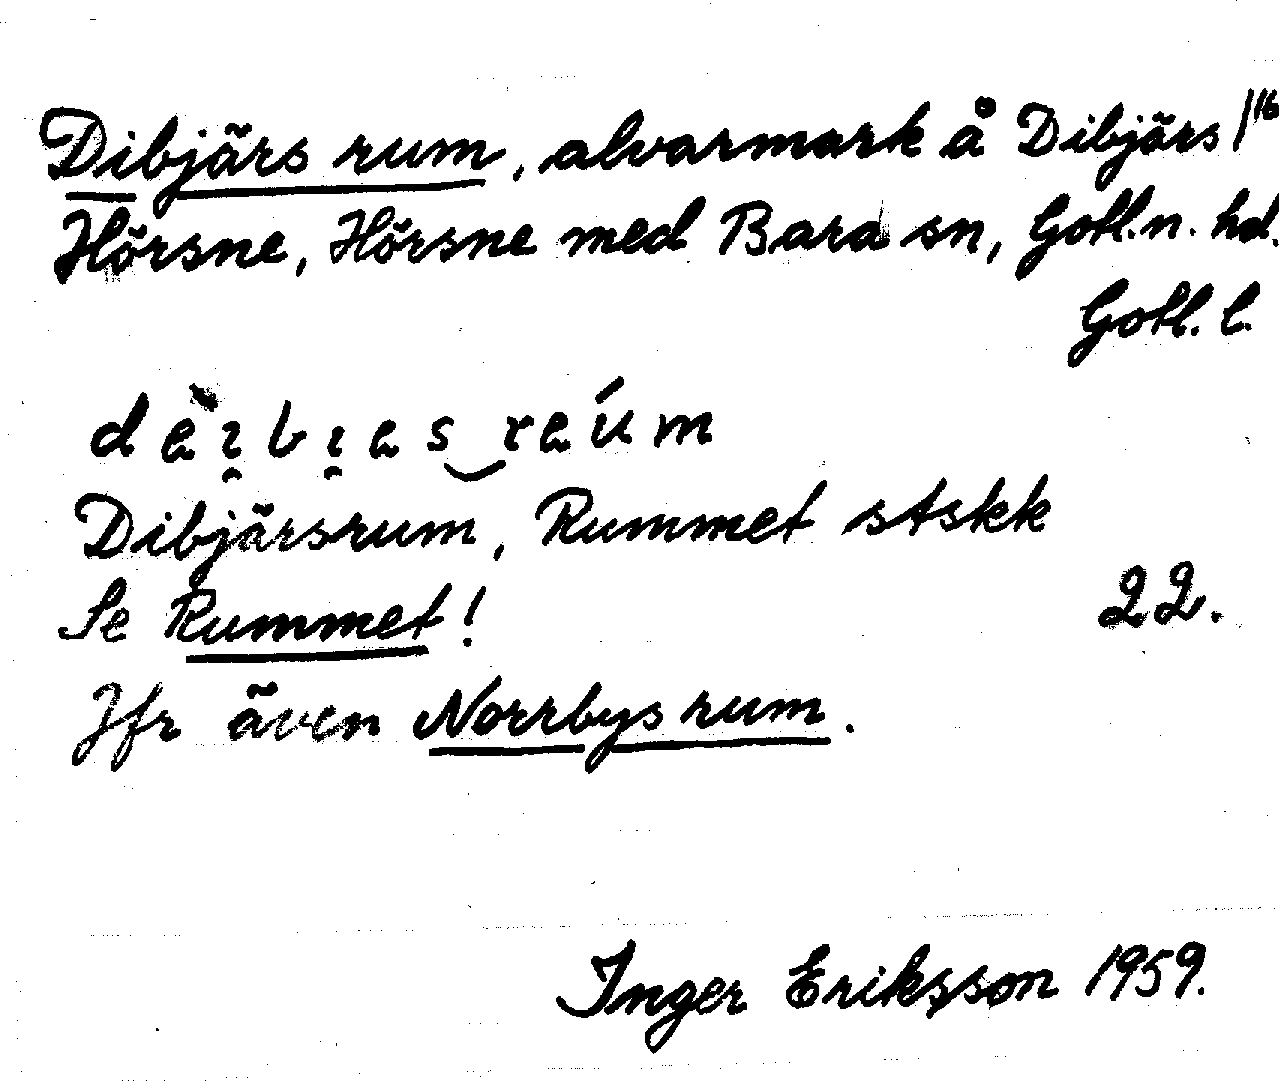 Dibjärs rum, alvarmark å Dibjärs 1/16
Hörsne, Hörsne med Bara sn, Gotl. n. hd.
Gotl. l.
Dibjärsrum, Rummet stskk
Se Rummet!
22.
Jfr även Norrbys rum.
Inger Eriksson 1959.